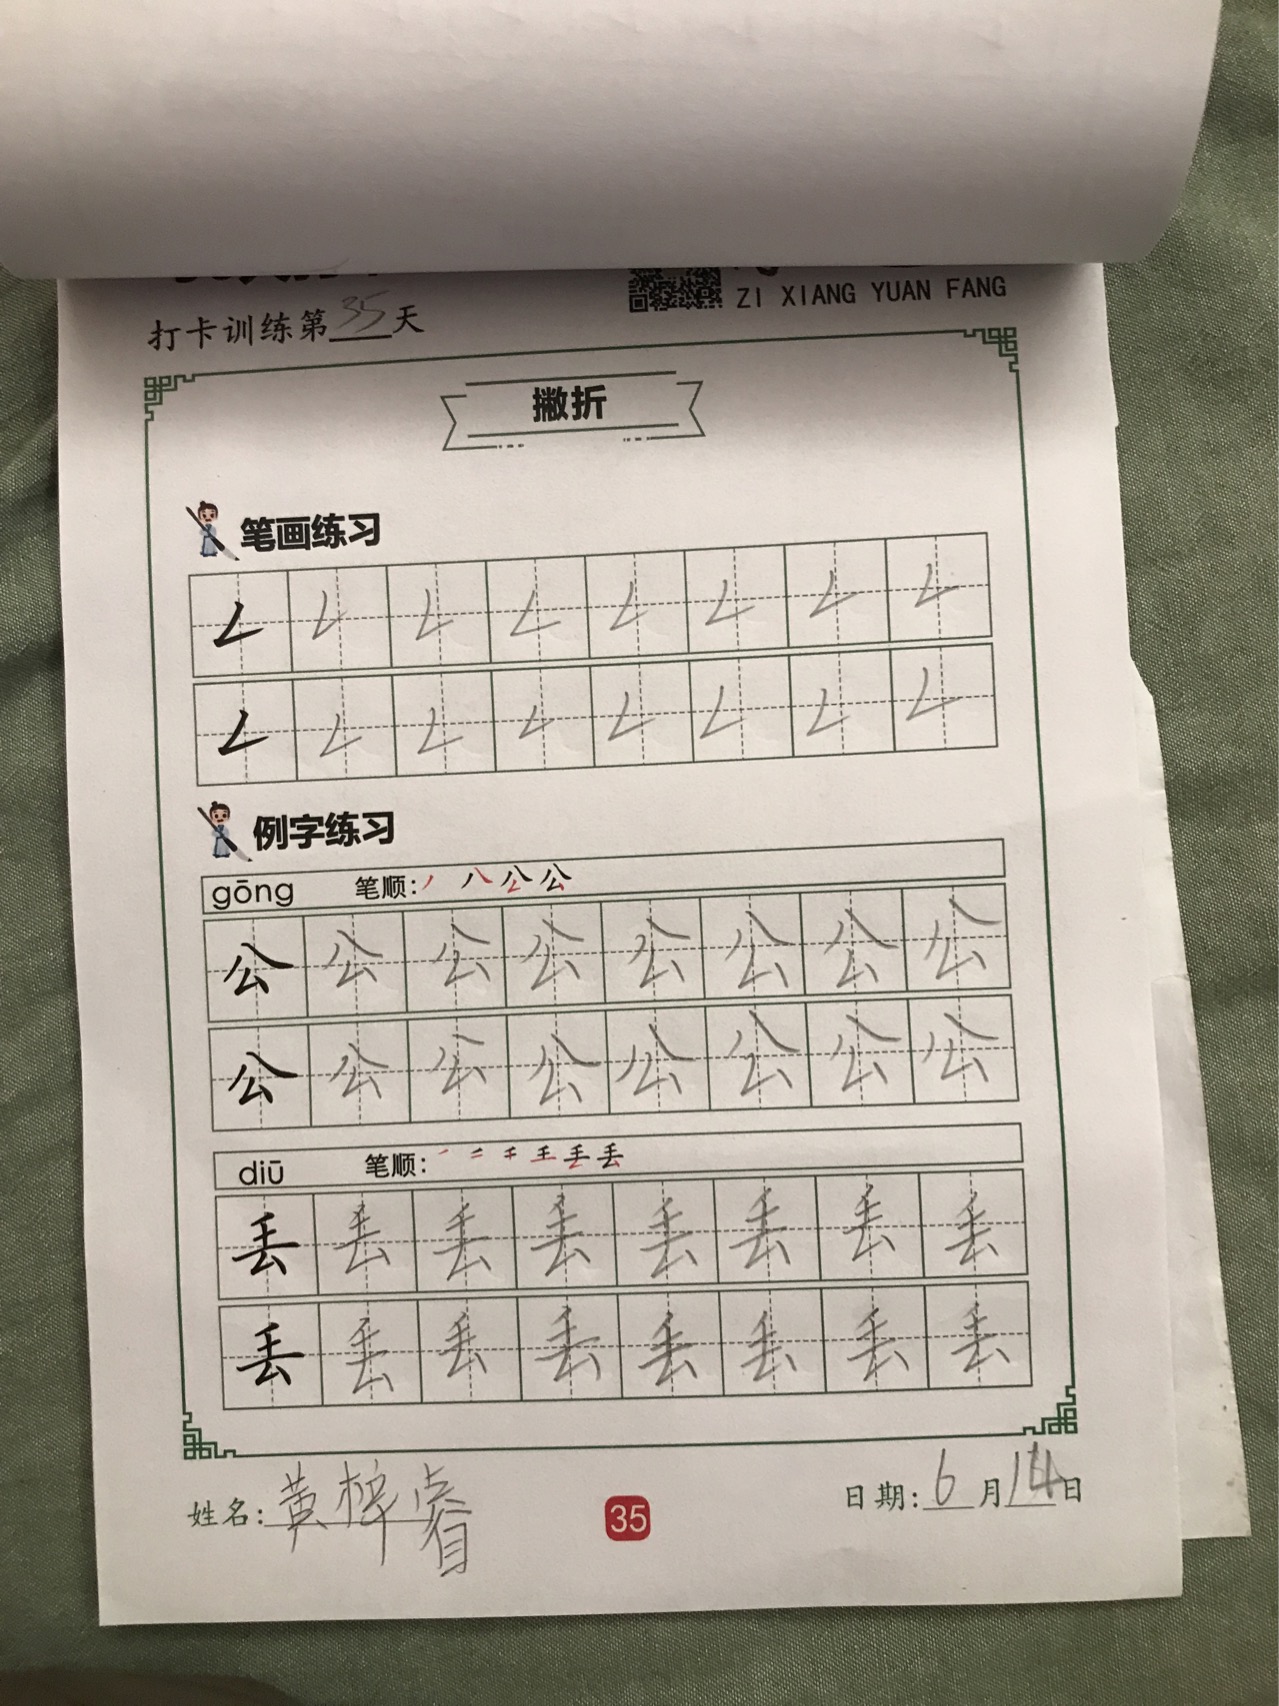 ZI XIANG YUAN FANG
打卡训练第35天
撇折
笔画练习
例字练习
gōng 笔顺:
公 公 公 公 公 公 公 公
公 公 公 公 公 公 公 公
diū 笔顺:
丢 丢 丢 丢 丢 丢 丢 丢
丢 丢 丢 丢 丢 丢 丢 丢
姓名:黄梓睿 35 日期:6月14日